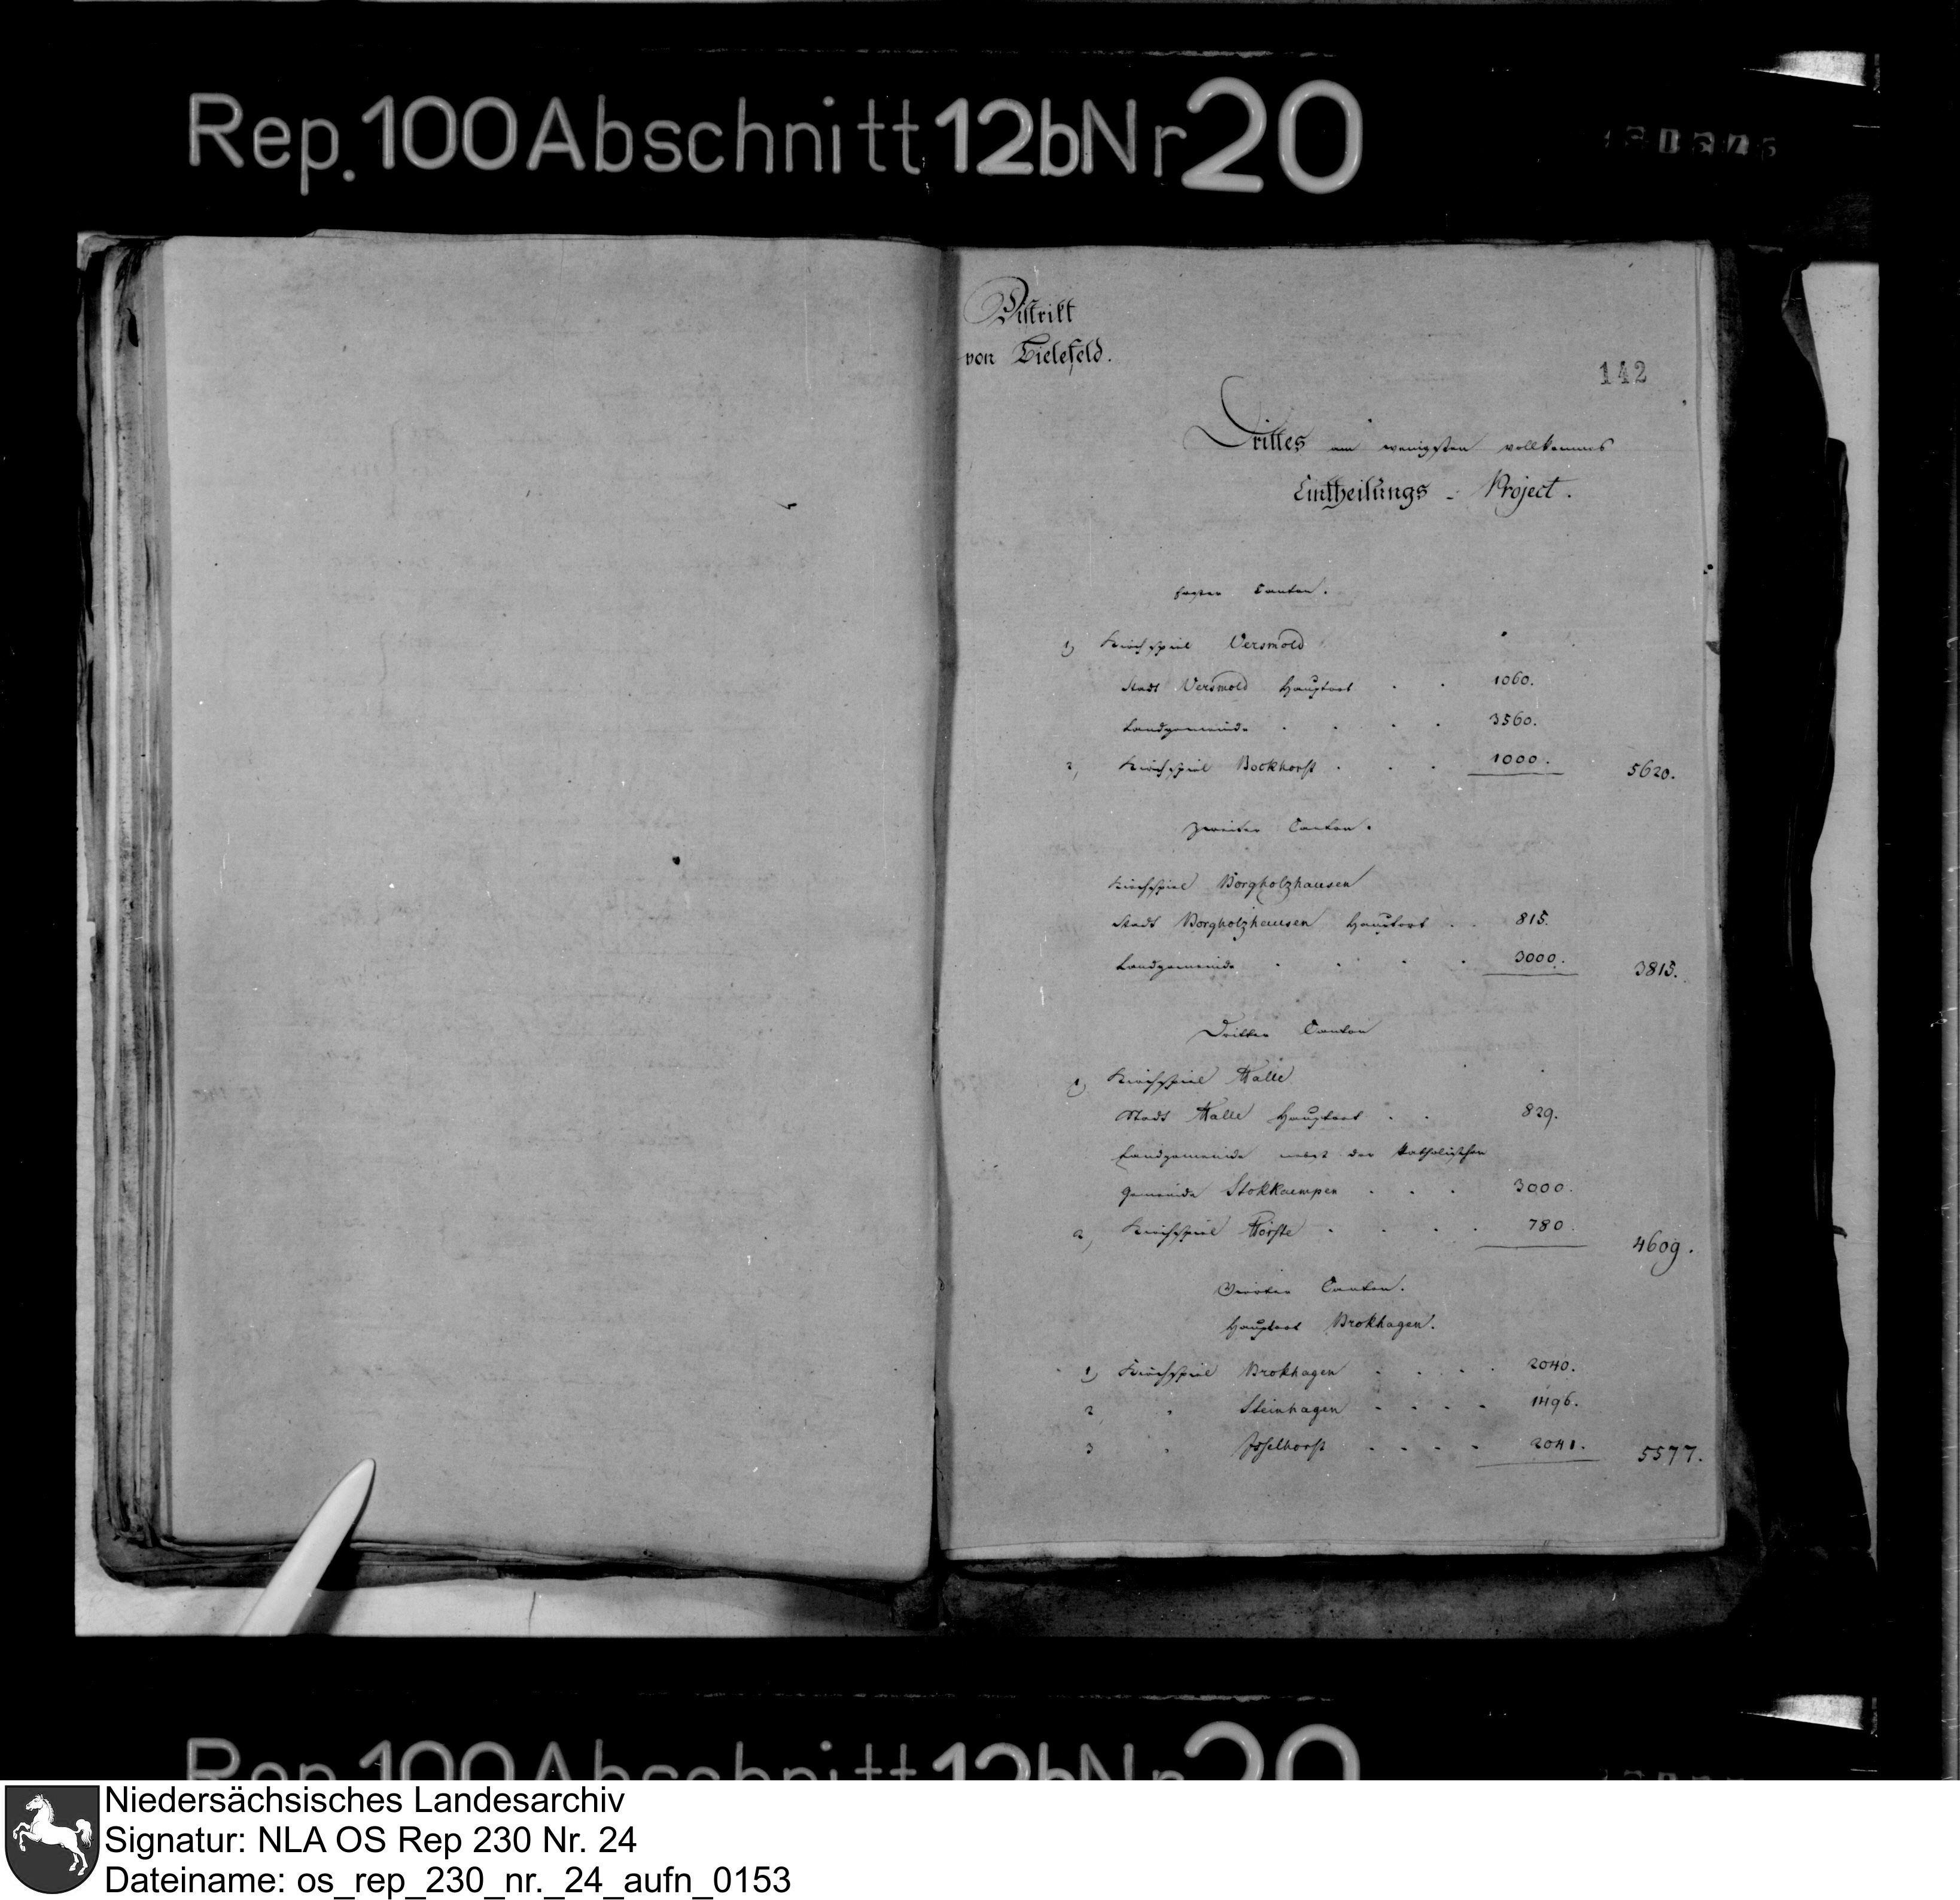 Rep. 100 Abschnitt 12b Nr 20
Distrikt
von Bielefeld.
142
Drittes am wenigsten vollkomnes
Eintheilungs - Project.
Erster Canton.
1) Kirchspiel Versmold
Stadt Versmold Hauptort . . 1060.
Landgemeinde . . . . 3560.
2, Kirchspiel Bockhorst . . . 1000. 5620.
Zweiter Canton.
Kirchspiel Borgholzhausen
Stadt Borgholzhausen Hauptort . . 815.
Landgemeinde . . . . 3000. 3815.
Dritter Canton
1) Kirchspiel Halle
Stadt Halle Hauptort . . 829.
Landgemeinde nebst der katholischen
Gemeinde Stokkaempen . . . 3000.
2, Kirchspiel Hörste . . . . 780. 4609.
Vierter Canton.
Hauptort Brokhagen.
1) Kirchspiel Brokhagen . . . . 2040.
2, " Steinhagen . . . . 1496.
3 " Isselhorst . . . . 2041. 5577.
Rep. 100 Abschnitt 12b Nr 20
Niedersächsisches Landesarchiv
Signatur: NLA OS Rep 230 Nr. 24
Dateiname: os_rep_230_nr._24_aufn_0153